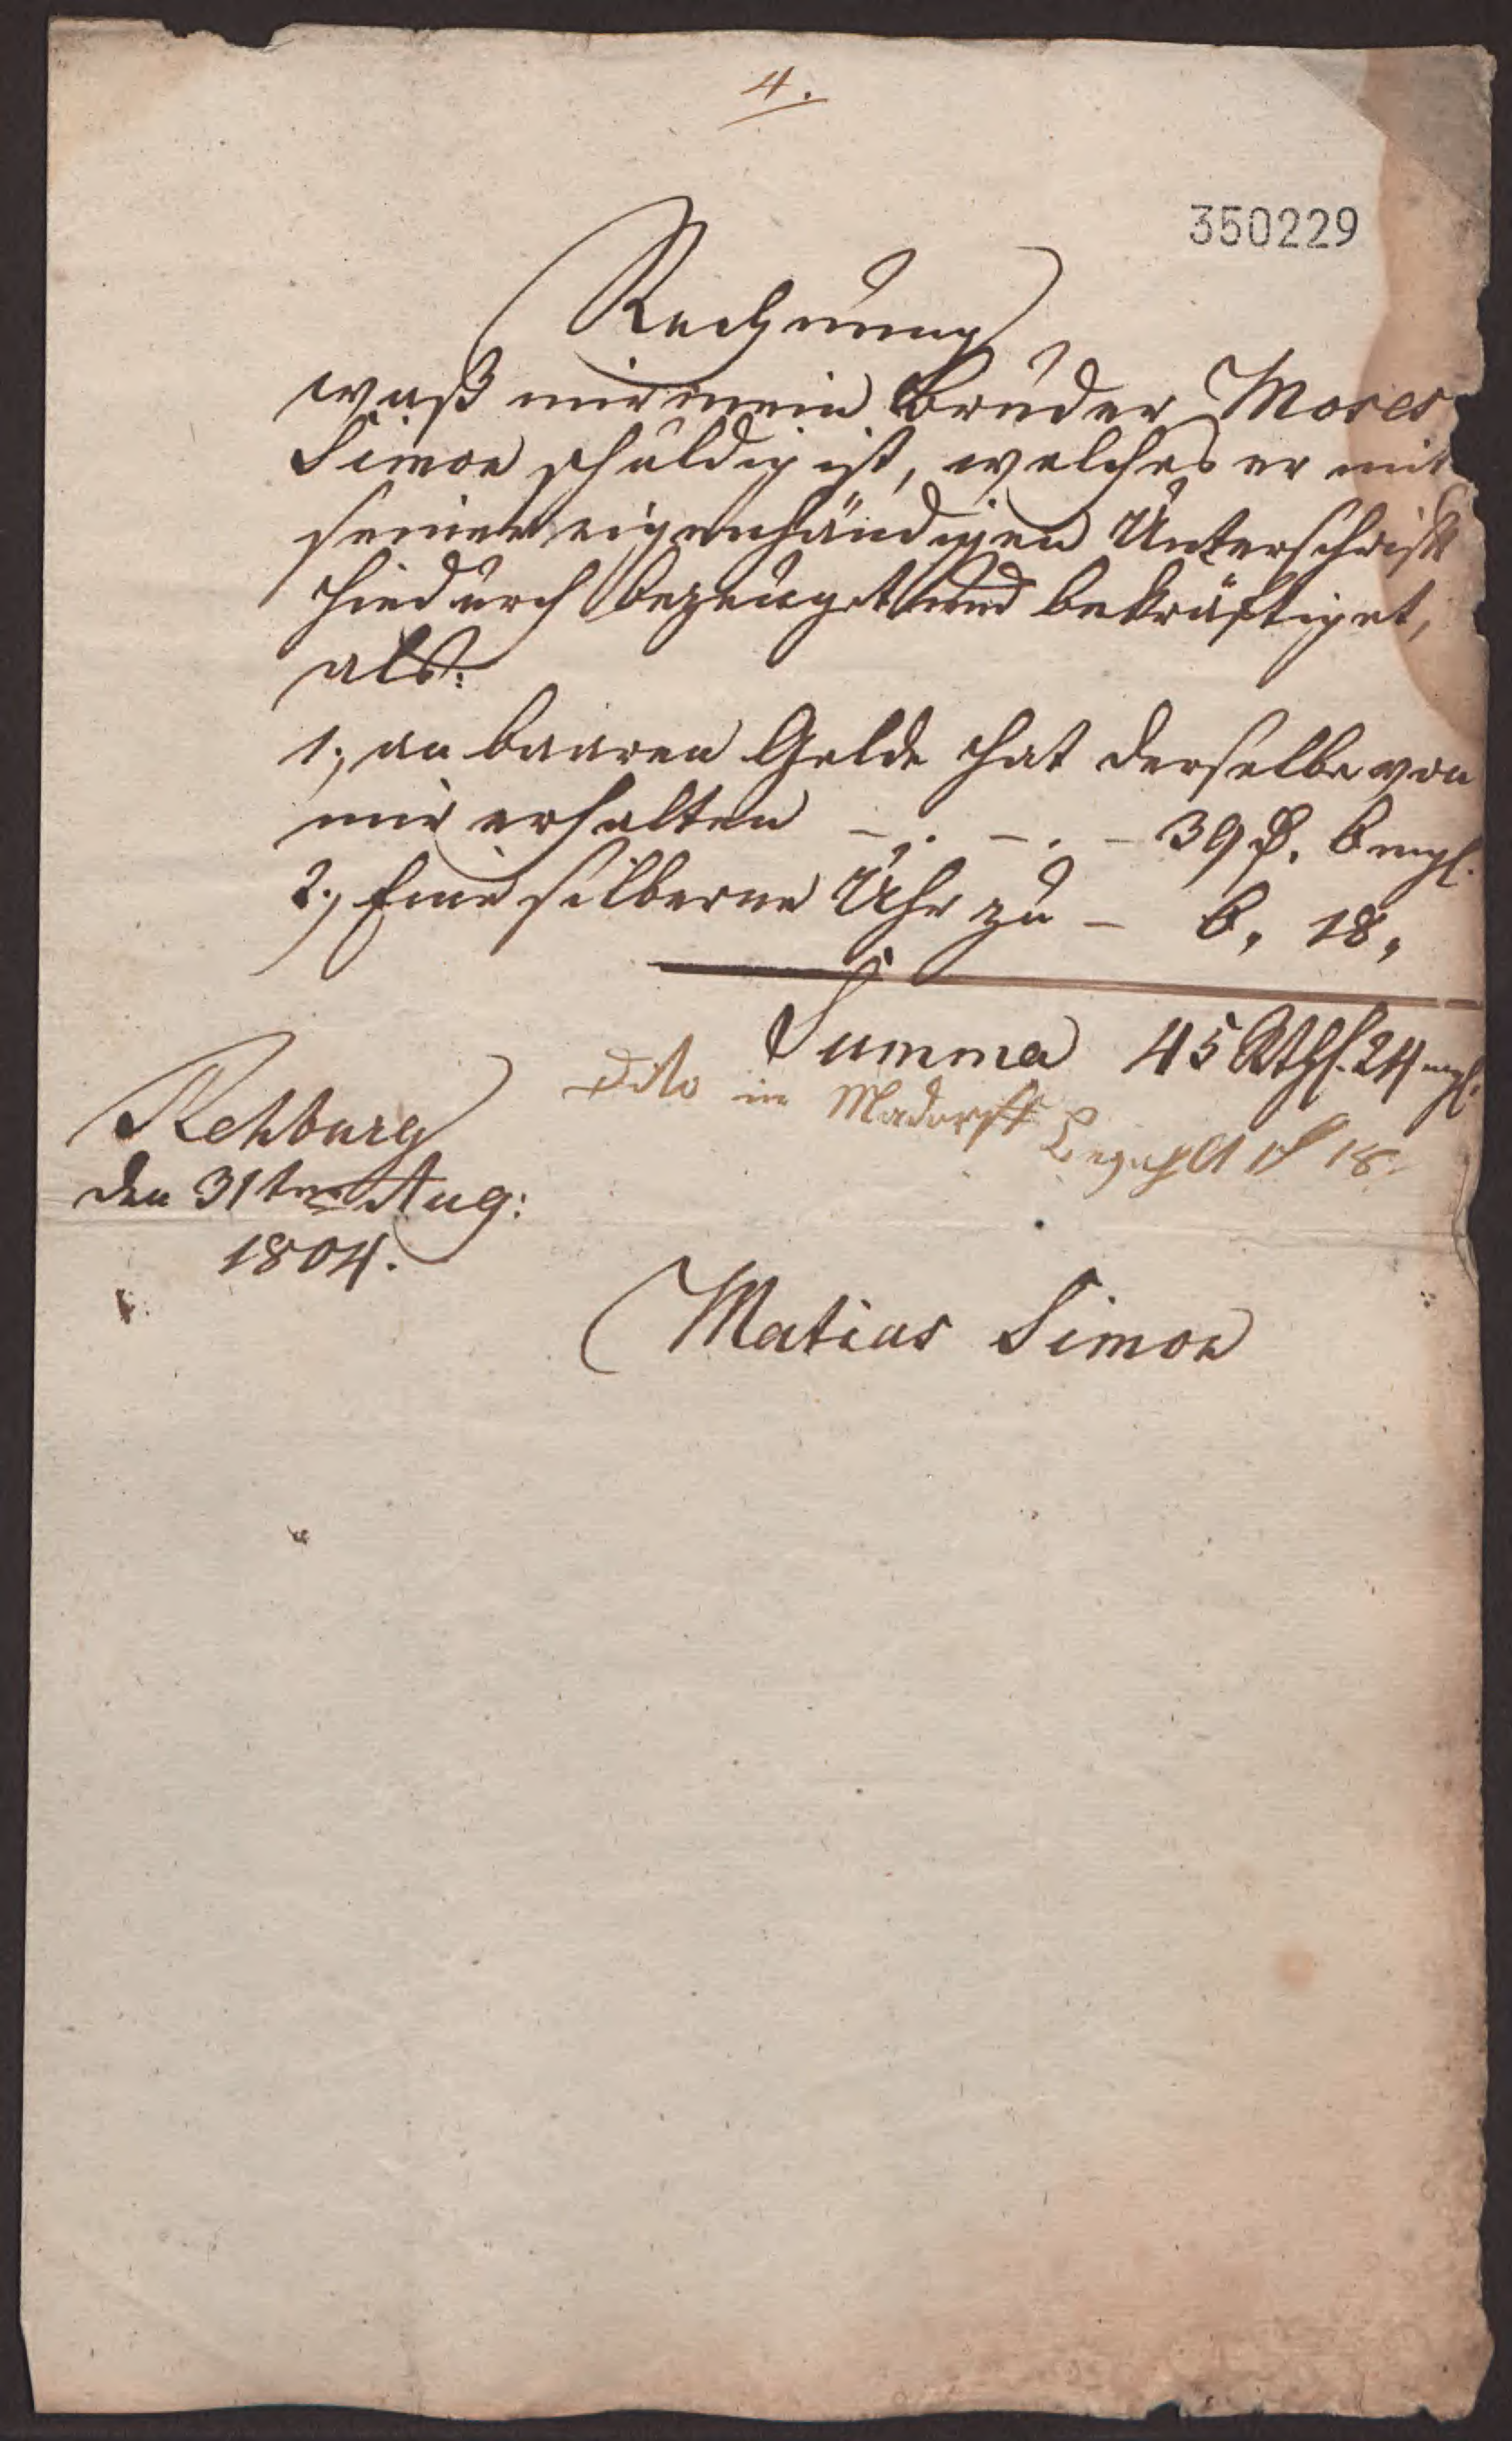 4.
350229
Rechnung
waß mir mein Bruder Moses
Simon schuldig ist, welches er mit
seiner eigenhändigen Unterschrift
hiedurch bezeuget und bekräftiget,
als:
1., an baaren Gelde hat derselbe von
mir erhalten - . - . - 39 ₰. 6 mgl.
2., Eine silberne Uhr zu - 6, 18,
Summa 45 Rthl. 24 mgl.
Dito in bezahlt 18
Rehburg
den 31ten Aug:
1804.
Matias Simon